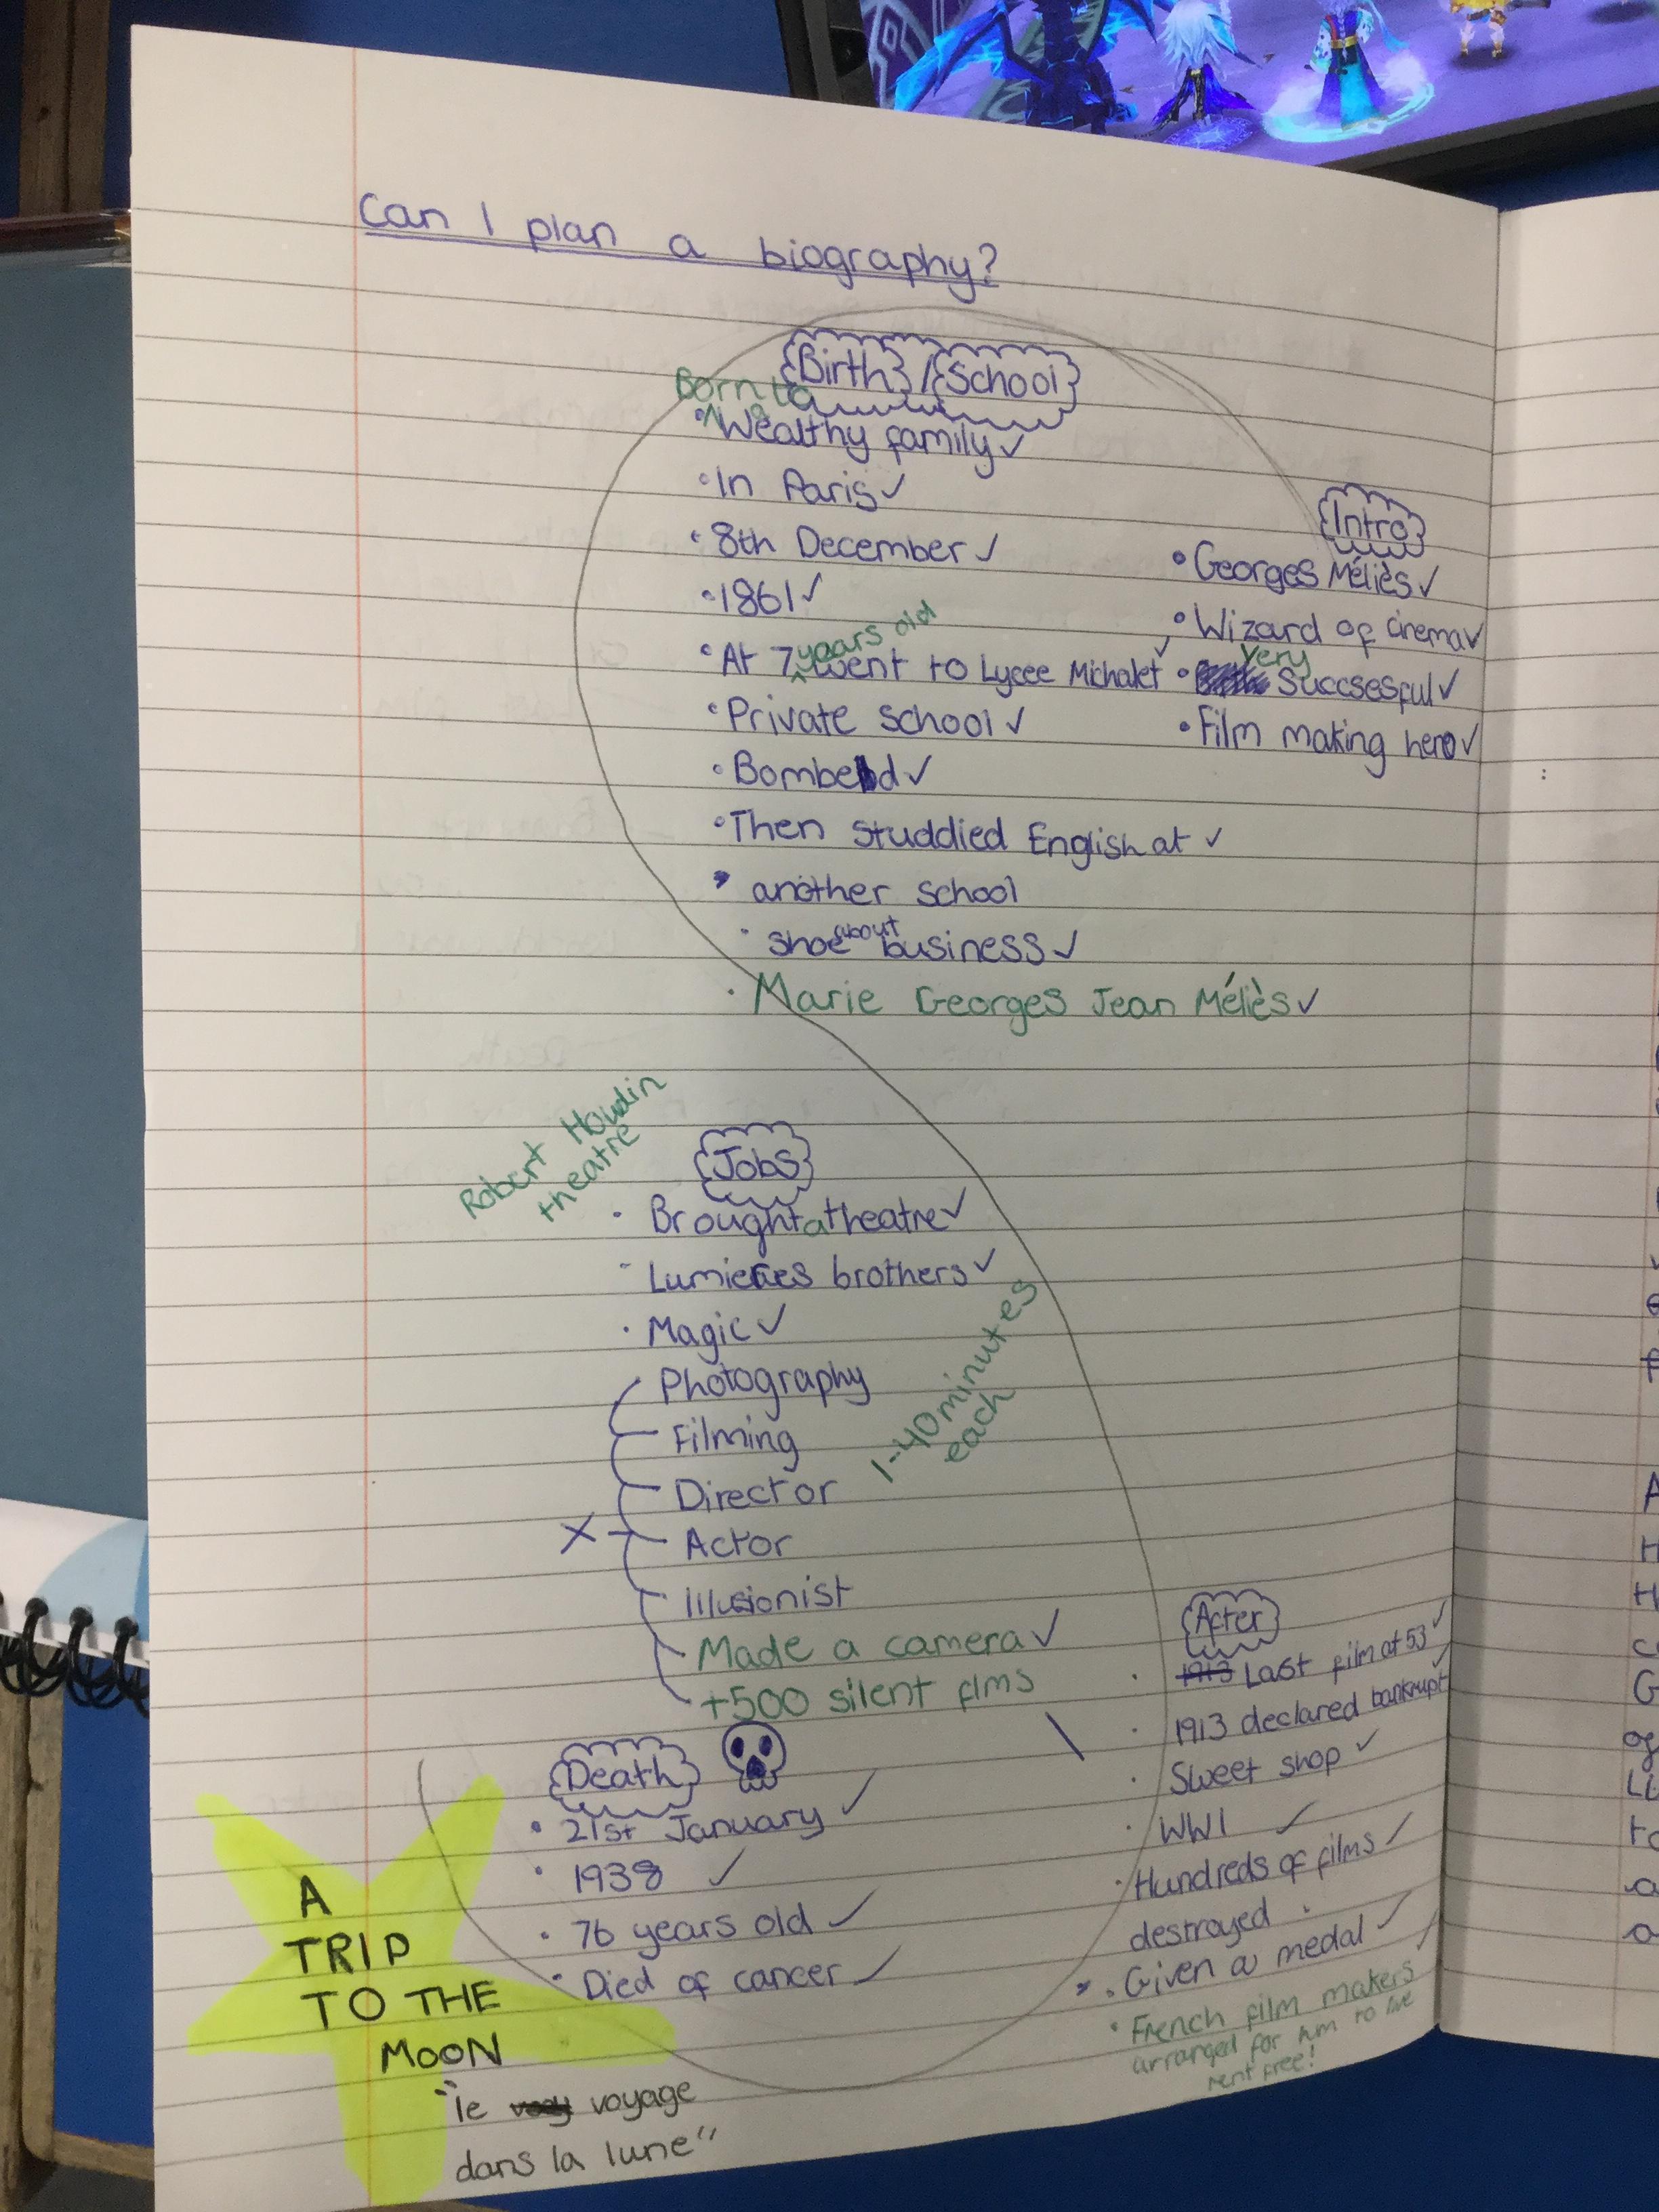 Can I plan a biography?
Birth / School
Born to a
Wealthy family ✓
In Paris ✓
8th December ✓
1861 ✓
At 7 years old went to Lycee Michalet ✓
Private school ✓
Bombed ✓
Then studdied English at ✓
another school
shoe about business ✓
Marie Georges Jean Méliès ✓
Intro
Georges Méliès ✓
Wizard of cinema ✓
very Succsesful ✓
Film making hero ✓
Robert Houdin
theatre
Jobs
Brought a theatre ✓
Lumieres brothers ✓
Magic ✓
Photography
Filming
Director
X Actor
Illusionist
Made a camera ✓
+500 silent flms
1-40 minutes
each
Death
21st January ✓
1938 ✓
76 years old ✓
Died of cancer ✓
After
1913 Last film at 53 ✓
1913 declared bankrupt ✓
Sweet shop ✓
WW1 ✓
Hundreds of films ✓
destroyed
Given a medal ✓
French film makers ✓
arranged for him to live
rent free!
A
TRIP
TO THE
MOON
"le voyage
dans la lune"